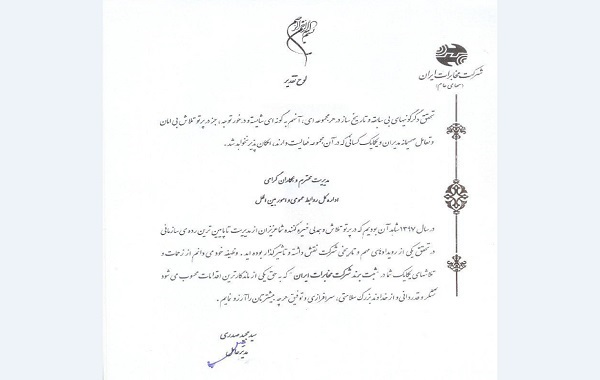 بسم الله الرحمن الرحیم
لوح تقدیر
شرکت مخابرات ایران
(سهامی عام)
تحقق دگرگونیهای بی سابقه و تاریخ ساز در هر مجموعه ای، آنهم به گونه ای شایسته و در خور توجه، جز در پرتو تلاش بی امان
و تعامل صمیمانه مدیران و یکایک کسانی که در آن مجموعه فعالیت دارند، امکان پذیر نخواهد شد.
مدیریت محترم و همکاران گرامی
اداره کل روابط عمومی و امور بین الملل
در سال ۱۳۹۷ شاهد آن بودیم که در پرتو تلاش و جدلی خیره کننده شما عزیزان از مدیریت تا پایین ترین رده ی سازمانی
در تحقق یکی از رویدادهای مهم و تاریخی شرکت نقش داشته و تأثیرگذار بوده اید. وظیفه خود می دانم از زحمات و
تلاشهای یکایک شما در "ثبت برند شرکت مخابرات ایران" که به حق یکی از ماندگارترین اقدامات محسوب می شود
تشکر و قدردانی و از خداوند بزرگ سلامتی، سرافرازی و توفیق هر چه بیشترتان را آرزو نمایم.
سید مجید صدری
مدیرعامل